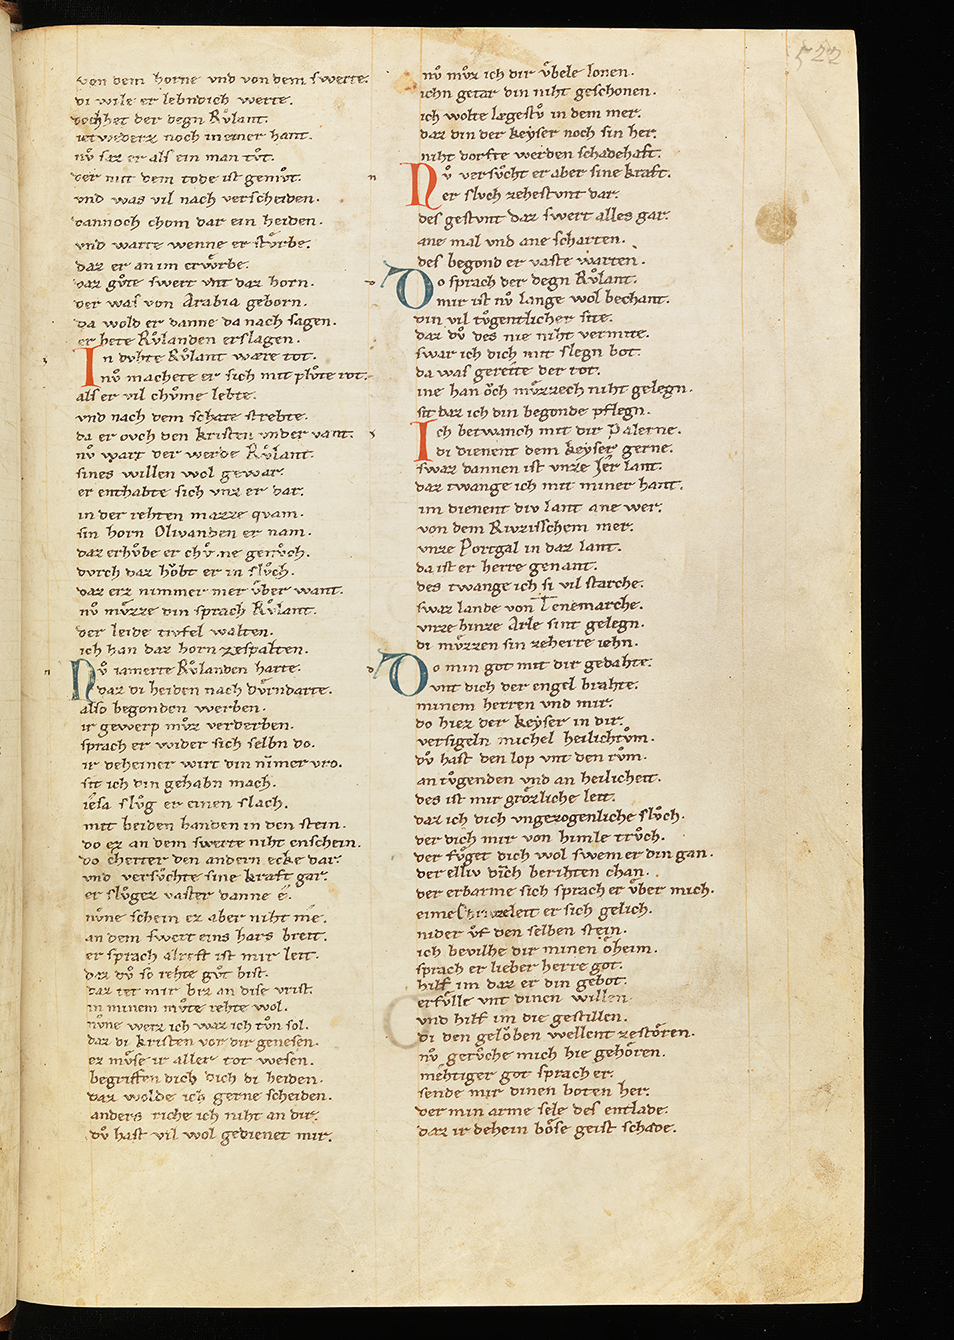 522
von dem horne vnd von dem swerte.
di wile er lebndich werte.
dochhet der degn Rvͦlant.
ietwederz noch in einer hant.
nvͦ saz er als ein man tvͦt.
der mit dem tode ist gemvͦt.
vnd was vil nach verscheiden.
dannoch chom dar ein heiden.
vnd warte wenne er stvͦrbe.
daz er an im erwͦrbe.
daz gvͦte swert vnt daz horn.
der was von Arabia geborn.
da wold er danne da nach sagen.
er hete Rvͦlanden erslagen.
In dvhte Rvͦlant wære tot.
nvͦ machete er sich mit plvͦte rot.
als er vil chvͦme lebte.
vnd nach dem schate strebte.
da er ovch den kristen vnder vant.
nvͦ wart der werde Rvͦlant.
sines willen wol gewar.
er enthabte sich vnz er dar.
in der rehten mazze quam.
sin horn Olivanden er nam.
daz erhvͦbe er chvͦme genvͦch.
dvrch daz hoͮbt er in slvͦch.
daz erz nimmer mer vͦber want.
nvͦ mvͦzze din sprach Rvͦlant.
der leide tivfel walten.
ich han daz horn zespalten.
Nvͦ iamerte Rvͦlanden harte.
daz di heiden nach dvͦrndarte.
also begonden werben.
ir gewerp mvͦz verderben.
sprach er wider sich selbn do.
ir deheiner wirt din nimer vro.
sit ich din gehabn mach.
iesa slvͦg er einen slach.
mit beiden handen in den stein.
do ez an dem swerte niht enschein.
do cherter den andern ecke dar.
vnd versvͦchte sine kraft gar.
er slvͦgez vaster danne é.
nvͦne schein ez aber niht me.
an dem swert eins hars breit.
er sprach alrest ist mir leit.
daz dvͦ so rehte gvͦt bist.
daz iet mir biz an dise vrist.
in minem mvͦte rehte wol.
nvͦne weiz ich waz ich tvͦn sol.
daz di kristen vor dir genesen.
ez mvͦse ir aller tot wesen.
begriffen dich dich di heiden.
daz wolde ich gerne scheiden.
anders riche ich niht an dir.
dvͦ hast vil wol gedienet mir.
nvͦ mvͦz ich dir vͦbele lonen.
ichn getar din niht geschonen.
ich wolte lægestvͦ in dem mer.
daz din der keyser noch sin her.
niht dorfte werden schadehaft.
Nvͦ versvͦcht er aber sine kraft.
er slvch zehestvnt dar.
des gestvnt daz swert alles gar.
ane mal vnd ane scharten.
des begond er vaste warten.
Do sprach der degn Rvͦlant.
mir ist nvͦ lange wol bechant.
din vil tvͦgentlicher site.
daz dvͦ des nie niht vermite.
swar ich dich mit slegn bot.
da was gereite der tot.
ine han oͮch mvͦzzech niht gelegn.
sit daz ich din begonde pflegn.
Ich betwanch mit dir Palerne.
di dienent dem keyser gerne.
swaz dannen ist vnze Jer lant.
daz twange ich mit miner hant.
im dienent div lant ane wer.
von dem Rivzisschem mer.
vnze Portgal in daz lant.
da ist er herre genant.
des twange ich si vil starche.
swaz lande von Tenemarche.
vnze hinze Arle sint gelegn.
di mvͦzzen sin zeherre iehn.
Do min got mit dir gedahte.
vnt dich der engel brahte.
minem herren vnd mir.
do hiez der keyser in dir.
versigeln michel heilichtvͦm.
dvͦ hast den lop vnt den rvͦm.
an tvͦgenden vnd an heilicheit.
des ist mir grozliche leit.
daz ich dich vngezogenliche slvͦch.
der dich mir von himle trvͦch.
der fvͦget dich wol swem er din gan.
der elliv dich berihten chan.
der erbarme sich sprach er vͦber mich.
eime leit er sich gelich.
nider vͦf den selben stein.
ich bevilhe dir minen oͤheim.
sprach er lieber herre got.
hilf im daz er din gebot.
erfvͦlle vnt dinen willen.
vnd hilf im die gestillen.
di den geloͮben wellent zestoͤren.
nvͦ gervͦche mich hie gehoͤren.
mehtiger got sprach er.
sende mir dinen boten her.
der min arme sele des entlade.
daz ir dehein boͤse geist schade.